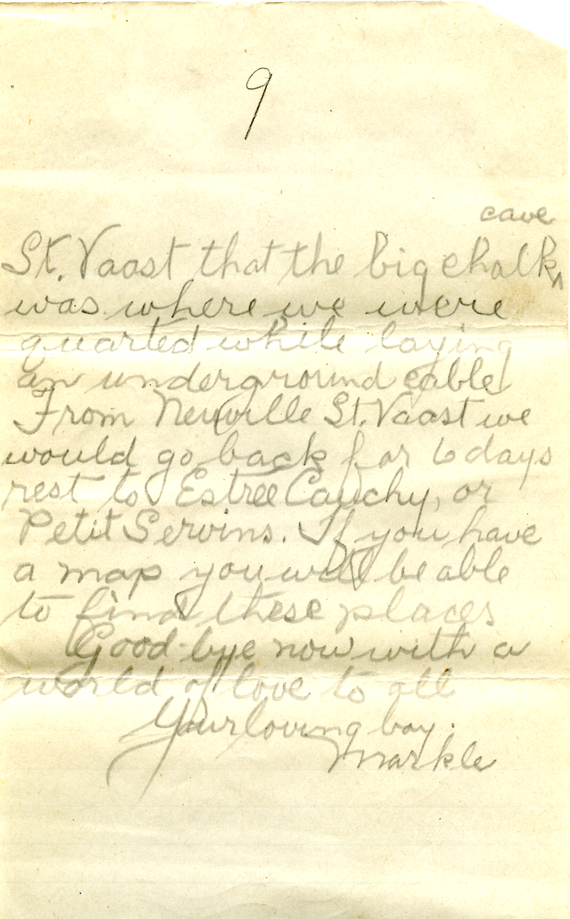 9
cave
St. Vaast that the big chalk ^
was where we were
quarted while laying
an underground cable
From Neuville St. Vaast we
would go back for 6 days
rest to Estree Cauchy, or
Petit Servins. If you have
a map you will be able
to find these places
Good-bye now with a
world of love to all
Your loving boy.
Markle